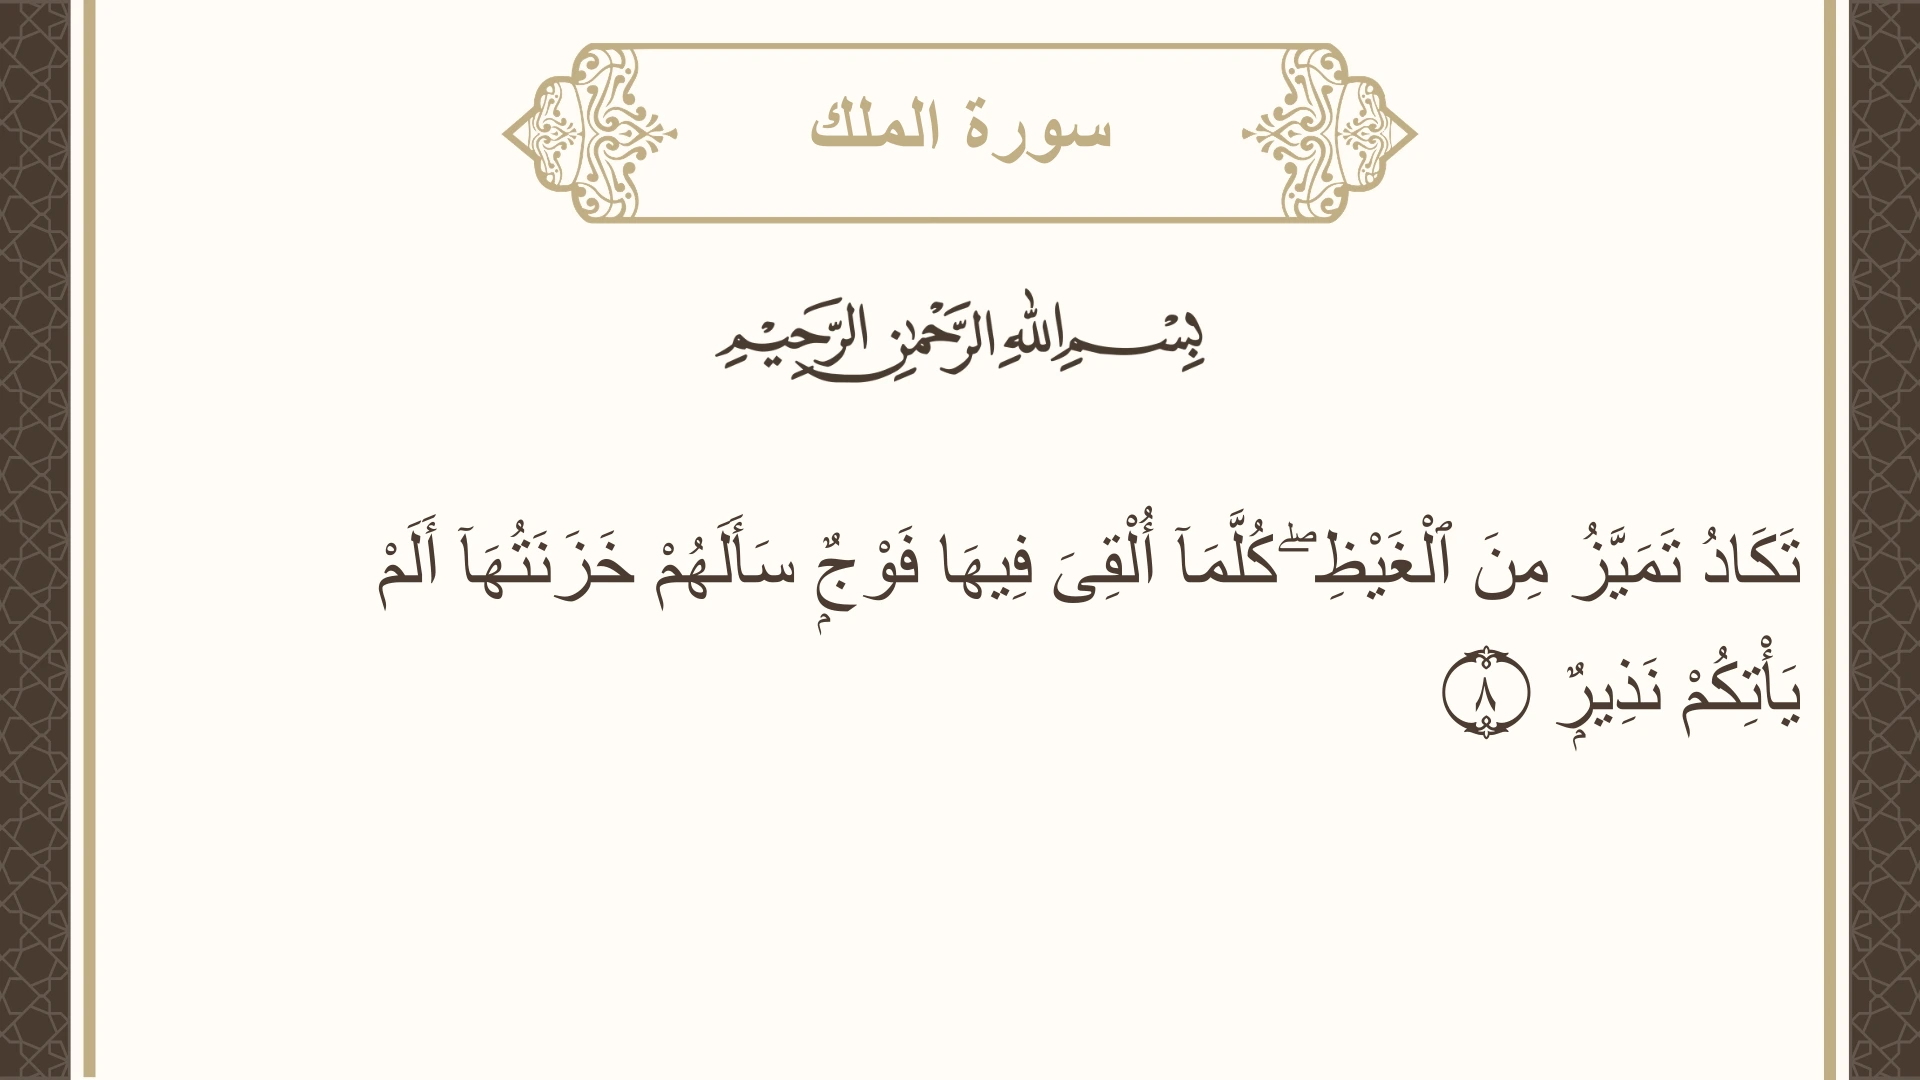 سورة الملك
بِسْمِ اللهِ الرَّحْمٰنِ الرَّحِيْمِ
تَكَادُ تَمَيَّزُ مِنَ ٱلْغَيْظِ ۖ كُلَّمَآ أُلْقِىَ فِيهَا فَوْجٌۭ سَأَلَهُمْ خَزَنَتُهَآ أَلَمْ
يَأْتِكُمْ نَذِيرٌۭ ٨